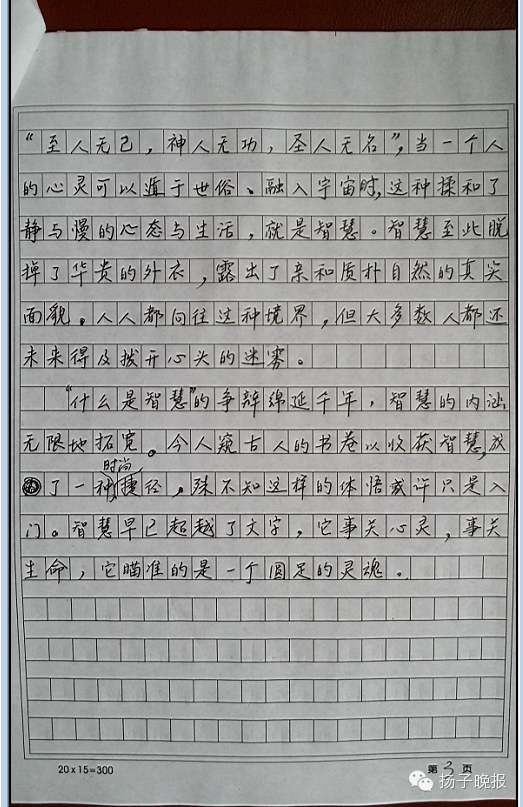 “至人无己，神人无功，圣人无名”，当一个人
的心灵可以遁于世俗、融入宇宙时，这种揉和了
静与慢的心态与生活，就是智慧。智慧至此脱
掉了华贵的外衣，露出了亲和质朴自然的真实
面貌。人人都向往这种境界，但大多数人都还
未来得及拨开心头的迷雾。
“什么是智慧”的争辩绵延千年，智慧的内涵
无限地拓宽。今人窥古人的书卷以收获智慧，成
时尚
了一种捷径。殊不知这样的体悟或许只是入
门。智慧早已超越了文字，它事关心灵，事关
生命，它瞄准的是一个圆足的灵魂。
20x15=300
第3页
扬子晚报